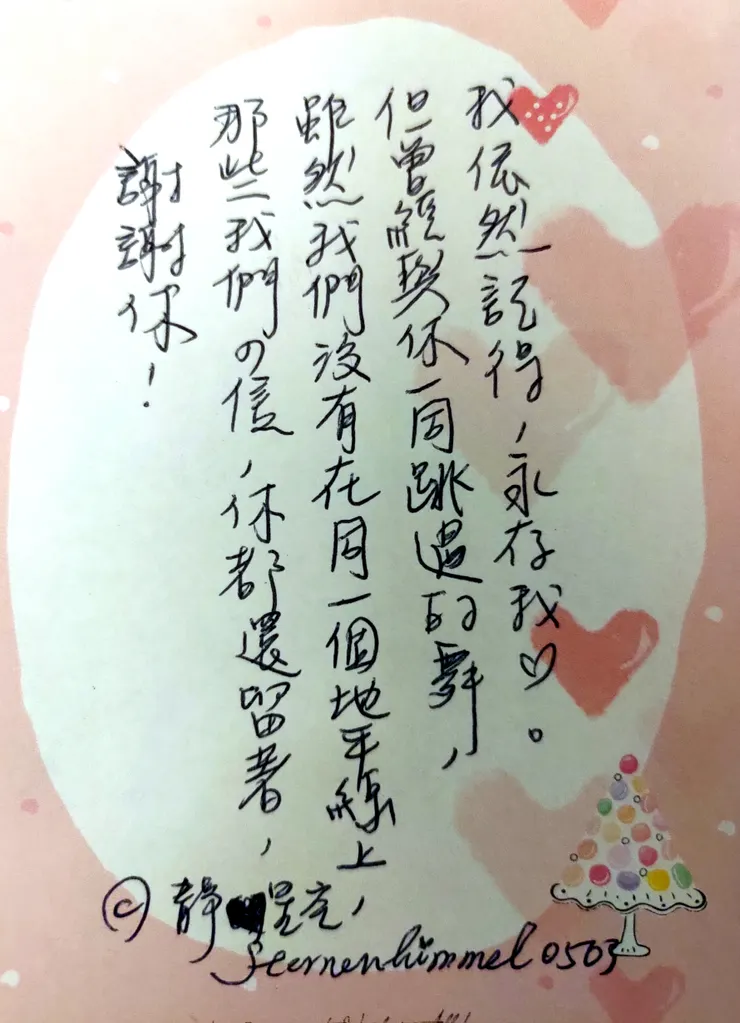 我依然記得，永存我♡。
但曾經與你一同跳過的舞，
雖然我們沒有在同一個地平線上，
那些我們的信，你都還留著，
謝謝你！
© 靜 星空
Sternenhimmel 0503